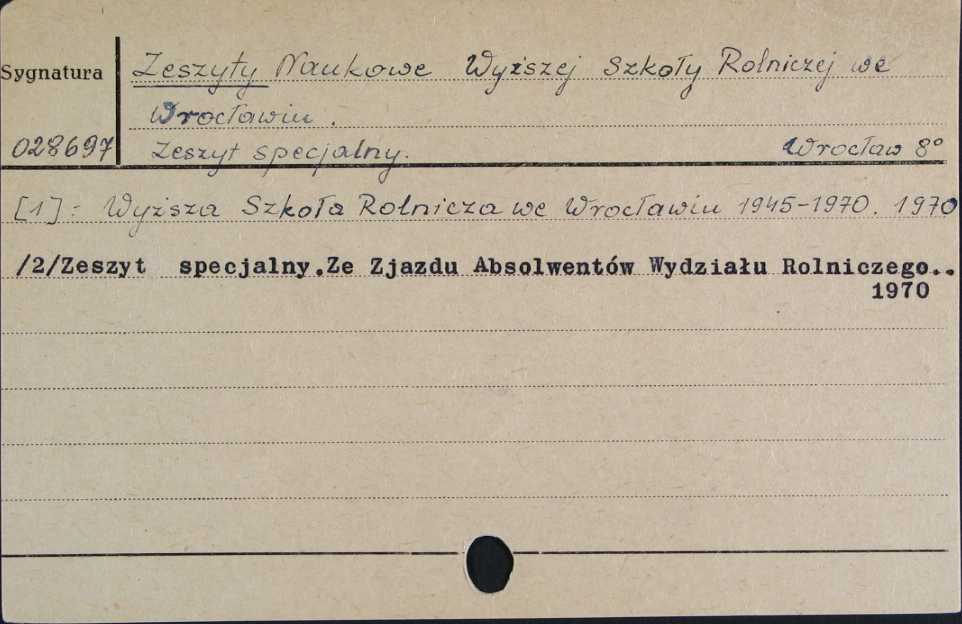 Sygnatura
Zeszyty Naukowe Wyższej Szkoły Rolniczej we
Wrocławiu.
028697
Zeszyt specjalny. Wrocław 8°
[1]: Wyższa Szkoła Rolnicza we Wrocławiu 1945-1970. 1970
/2/Zeszyt specjalny.Ze Zjazdu Absolwentów Wydziału Rolniczego..
1970